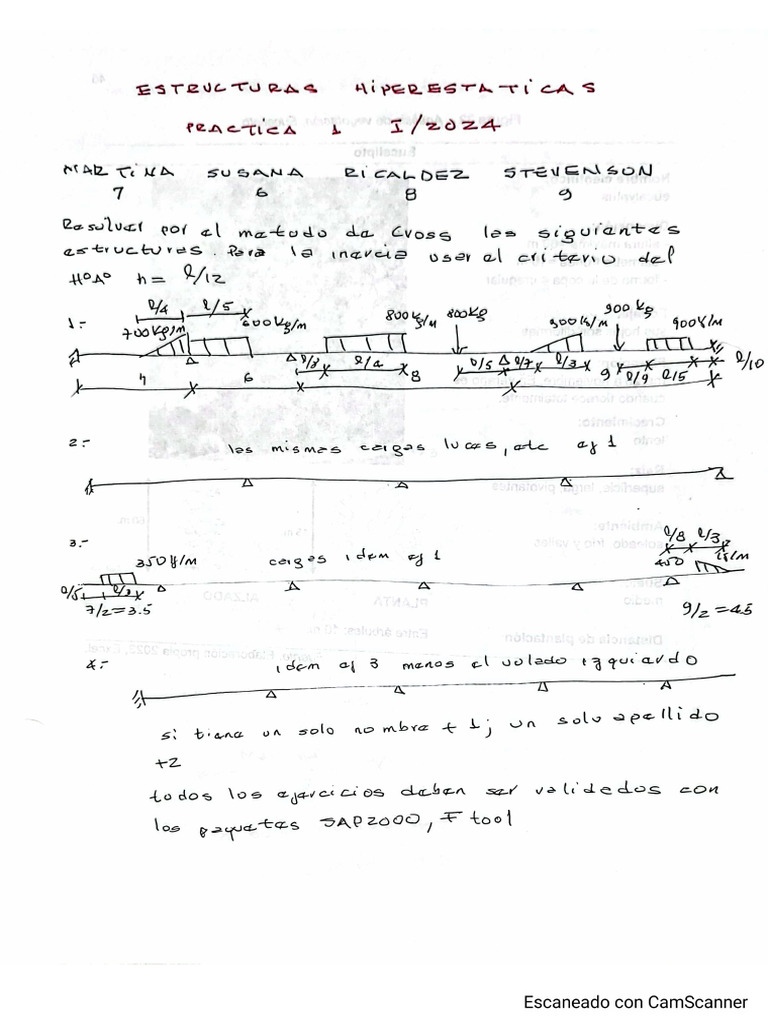 ESTRUCTURAS HIPERESTATICAS
PRACTICA 1 I/2024
MARTINA SUSANA RICALDEZ STEVENSON
7 6 8 9
Resolver por el metodo de Cross las siguientes
estructuras. Para la inercia usar el criterio del
HºAº h = l/12
1.-
l/4 l/5
700 Kg/m 600 Kg/m 800 Kg/m 800 Kg 900 K/m 900 Kg 900 K/m
l/8 l/4 l/5 l/7 l/3 l/9 l/5 l/10
7 6 8 9
2.- las mismas cargas luces, etc ej 1
3.- 350 K/m cargas idem ej 1 l/8 l/3
450 K/m
l/5 l/3
7/2 = 3.5 9/2 = 4.5
4.- idem ej 3 menos el volado izquierdo
si tiene un solo nombre + 1; un solo apellido
+2
todos los ejercicios deben ser validados con
los paquetes SAP2000, F tool
Escaneado con CamScanner